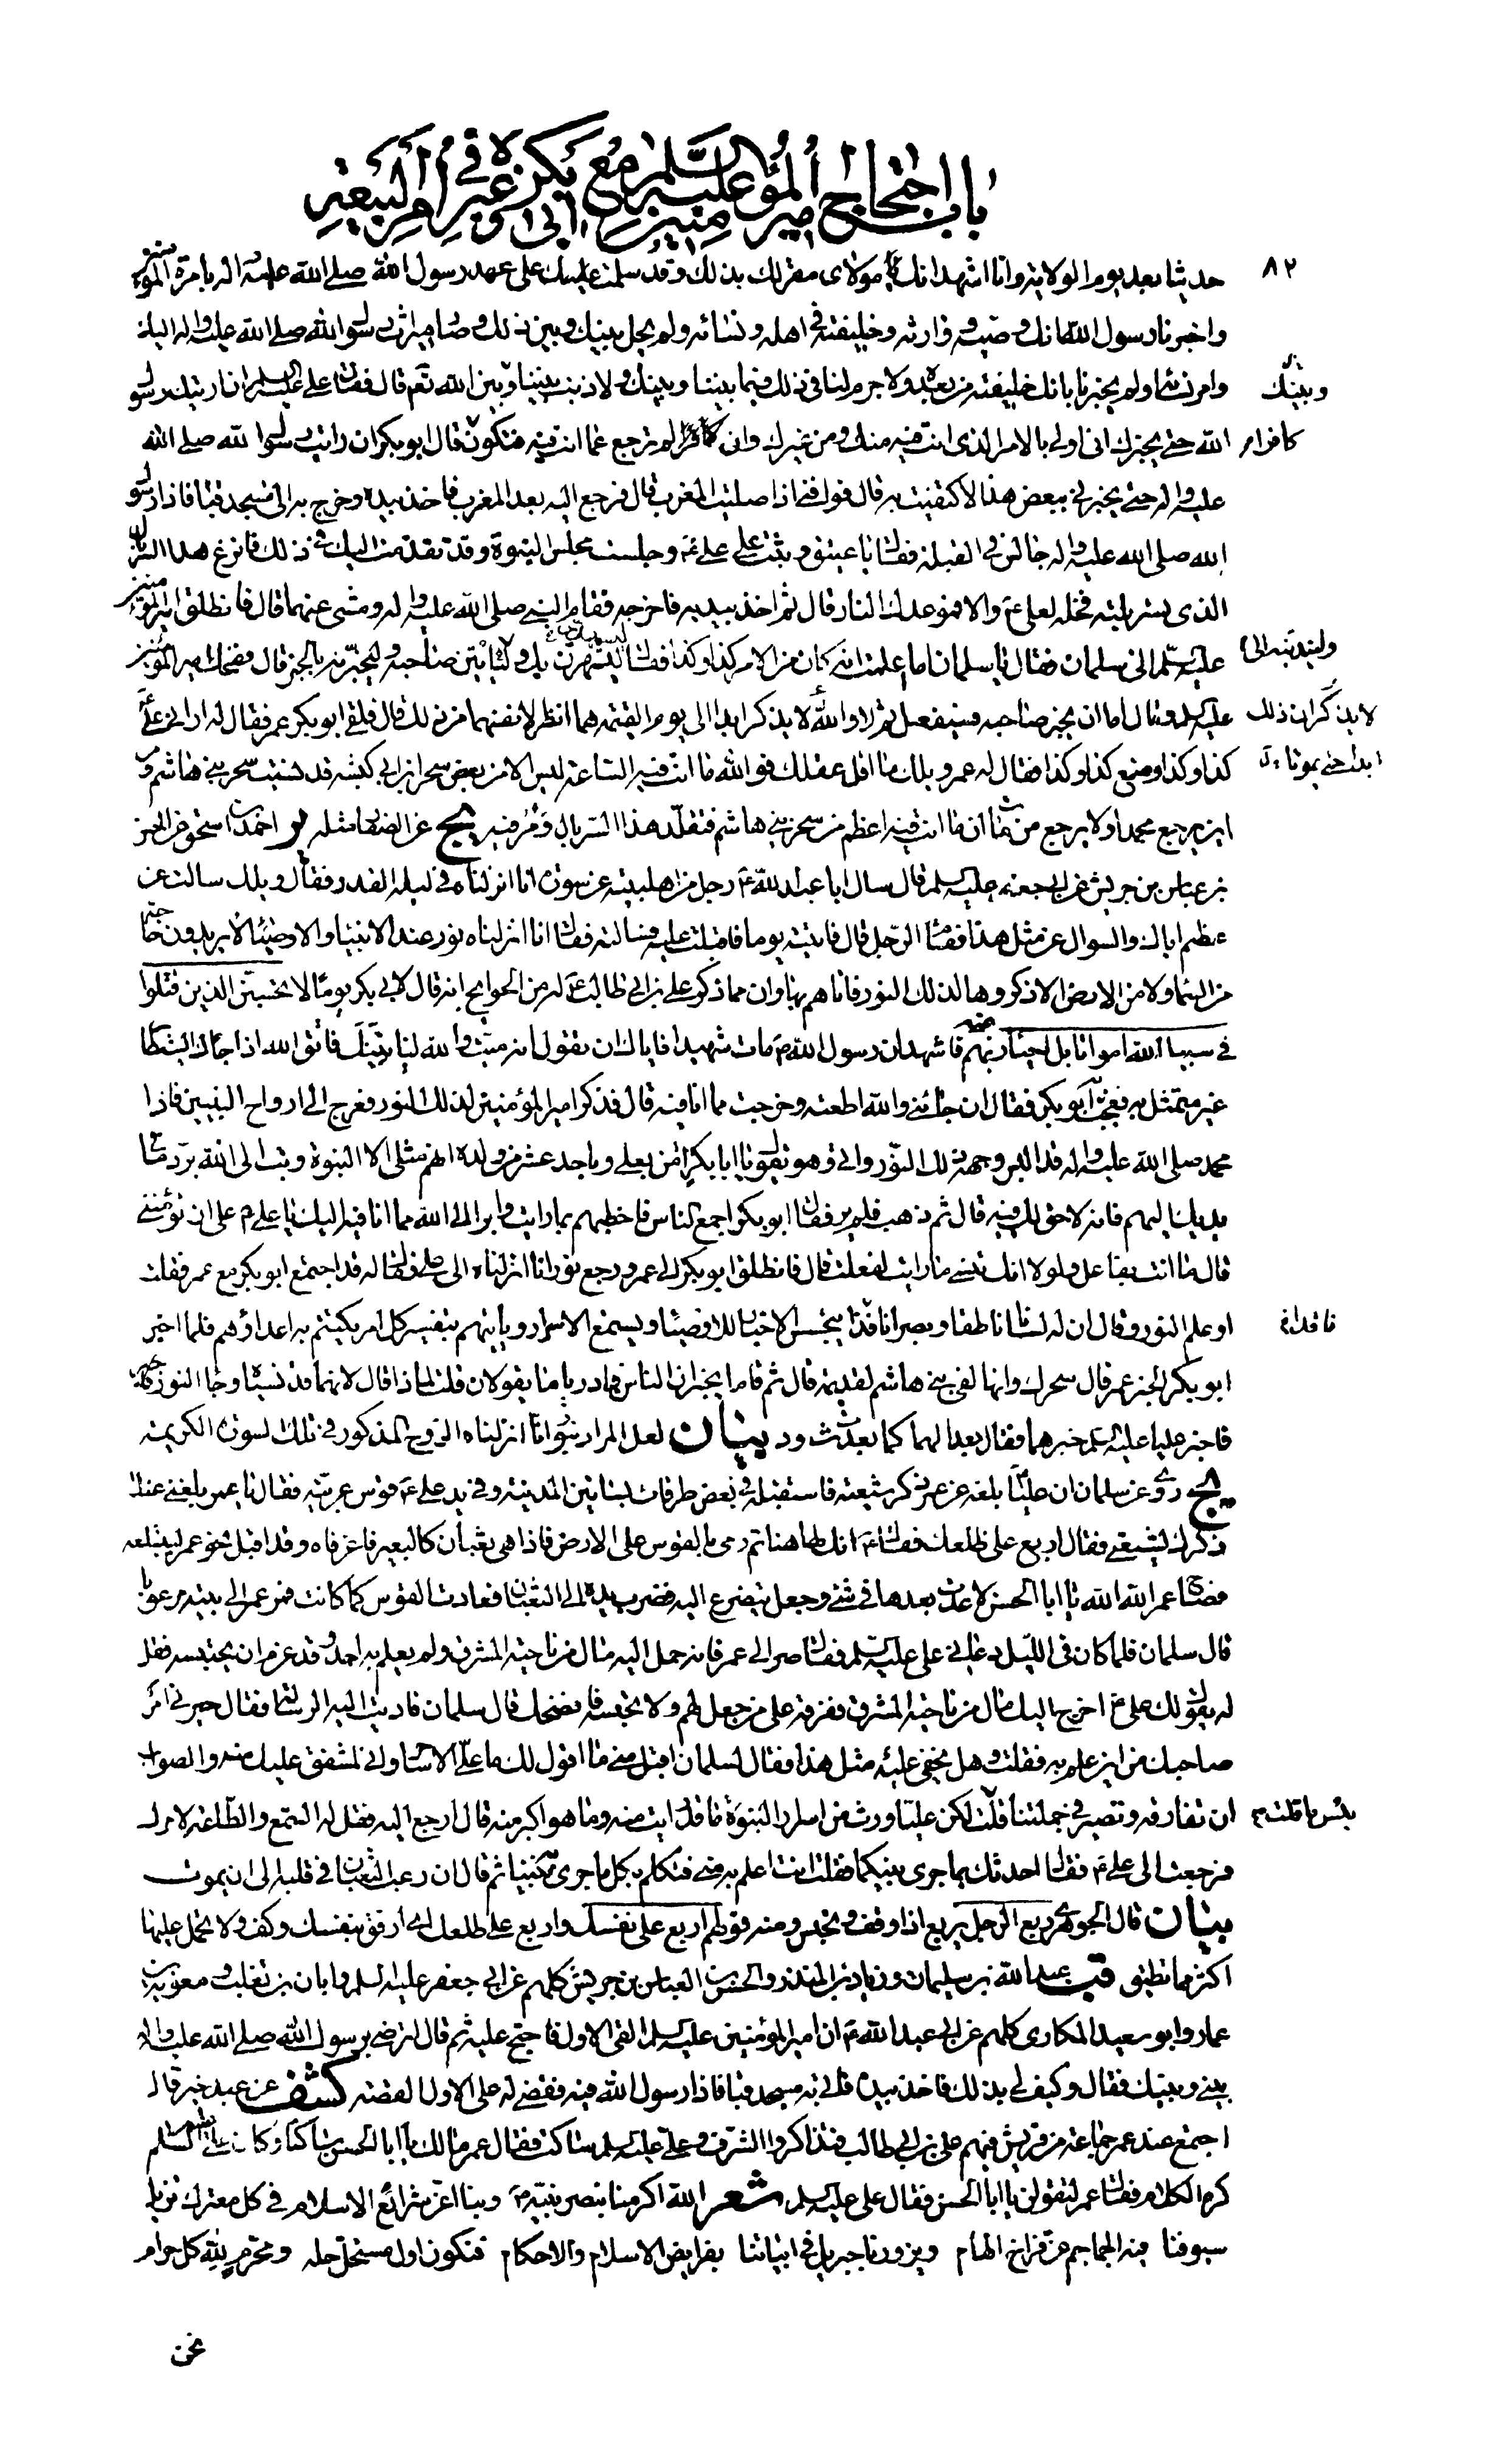 باب احتجاج أمير المؤمنين عليه السلم مع أبى بكر وغيره في أمر البيعة
٨٢
حديثا بعد يوم الولاية وانا اشهد انك مولاى مقر لك بذلك وقد سلمت عليك على عهد رسول الله صلى الله عليه واله بامرة المؤمنين
واخبرنا رسول الله انك وصيه ووارثه وخليفته في اهله ونسائه ولم يحل بينك وبين ذلك وصار ميراث رسول الله صلى الله عليه واله اليك
وامر نسائه ولم يخبرنا بانك خليفته من بعده ولا جرم لنا في ذلك فيما بيننا وبينك ولا ذنب بيننا وبين الله تعم قال فقال على عليه السلم ان اريتك رسول
وبينك
الله حتى يخبرك انى اولى بالامر الذى انت فيه منك ومن غيرك وان لم ترجع عما انت فيه فتكون قال ابو بكر ان رايت رسول الله صلى الله
كافرا م
عليه واله حتى يخبرنى ببعض هذا لاكتفيت به قال فوافنى اذا صليت المغرب قال فرجع اليه بعد المغرب فاخذ بيده وخرج به الى مسجد قبا فاذا رسول
الله صلى الله عليه واله جالس في القبلة فقال يا عتيق وثبت على على ع وجلست مجلس النبوة وقد تقدمت اليك في ذلك فانزع هذا السربال
الذى تسربلته فخله لعلى ع والا فموعدك النار قال ثم اخذ بيديه فاخرجه فقام النبى صلى الله عليه واله ومشى عنهما قال فانطلق امير المؤمنين
عليه السلم الى سلمان فقال يا سلمان اما علمت انه كان من الامر كذا وكذا فقال ليشهرن بك وليأتين صاحبه وليخبرنه بالخبر قال فضحك امير المؤمنين
وليبدينه الى
عليه السلم وقال اما ان يخبر صاحبه فسيفعل ثم لا والله لا يذكر ابدا الى يوم القيمة هما انظر لانفسهما من ذلك قال فلقى ابو بكر عمر فقال له ارانى على ع
لا يذكران ذلك
كذا وكذا وصنع كذا وكذا فقال له عمر ويلك ما اقل عقلك فوالله ما انت فيه الساعة ليس الا من بعض سحر ابن ابى كبشه قد نسيت سحر بنى هاشم ومن
ابدا حتى يموتا
اين يرجع محمد ولا يرجع من مات ان ما انت فيه اعظم من سحر بنى هاشم فتقلد هذا السربال ومر فيه يج عن الصفار مثله ير احمد بن اسحق عن الحسن
بن عباس بن حريش عن ابى جعفر عليه السلم قال سال ابا عبد الله ع رجل من اهل بيته عن سورة انا انزلناه في ليلة القدر فقال ويلك سالت عن
عظيم اياك والسوال عن مثل هذا فقام الرجل قال فاتيته يوما فاقبلت عليه فسالته فقال انا انزلناه نور عند الانبياء والاوصياء لا يريدون حاجة
من السماء ولا من الارض الا ذكروها لذلك النور فاتاهم بها وان مما ذكر على بن ابى طالب ع له من الحوايج انه قال لابى بكر يوما لا تحسبن الذين قتلوا
في سبيل الله امواتا بل احياء عند ربهم فاشهد ان رسول الله ص مات شهيدا فاياك ان تقول انه ميت والله لياتينك فاتق الله اذا جاءك الشيطان
غير متمثل به فعجب ابو بكر فقال ان جائنى والله اطعته وخرجت مما انا فيه قال فذكر امير المؤمنين لذلك النور فعرج الى ارواح النبيين فاذا
محمد صلى الله عليه واله قد البس وجهه ذلك النور واتى وهو يقول يا ابا بكر امن بعلى وباحد عشر من ولده انهم مثلى الا النبوة وتب الى الله برد ما في
يديك اليهم فانه لا حق لك فيه قال ثم ذهب فلم ير فقال ابو بكر اجمع الناس فاخطبهم بما رايت وابرا الى الله مما انا فيه اليك يا على م على ان تؤمننى
قال ما انت بفاعل ولولا انك تنسى ما رايت لفعلت قال فانطلق ابو بكر الى عمر ورجع نور انا انزلناه الى على فقال له قد اجتمع ابو بكر مع عمر فقلت
او علم النور قال ان له لسانا ناطقا وبصرا نافذا يتجسس الاخبار للاوصياء ويستمع الاسرار وياتيهم بتفسير كل امر يكتتم به اعداؤهم فلما اخبر
ناقدا م
ابو بكر الخبر عمر قال سحرك وانها لفى بنى هاشم لقديمة قال ثم قاما يخبران الناس فما دريا ما يقولان قلت لماذا قال لانهما قد نسياه وجاء النور
فاخبر عليا عليه السلم خبرهما فقال بعدا لهما كما بعدت ثمود بيان لعل المراد بنور انا انزلناه الروح المذكور في تلك السورة الكريمة
يج روى عن سلمان ان عليا ع بلغه عن عمر ذكر شيعته فاستقبله في بعض طرقات بساتين المدينة وفي يد على ع قوس عربية فقال يا عمر بلغنى عنك
ذكرك لشيعتى فقال اربع على ظلعك فقال ع انك لها هنا ثم رمى بالقوس على الارض فاذا هى ثعبان كالبعير فاغر فاه وقد اقبل نحو عمر ليبتلعه
فصاح عمر الله الله يا ابا الحسن لا عدت بعدها في شئ وجعل يتضرع اليه فضرب يده الى الثعبان فعادت القوس كما كانت فمر عمر الى بيته مرعوبا
قال سلمان فلما كان في الليل دعانى على عليه السلم فقال صر الى عمر فانه حمل اليه مال من ناحية المشرق ولم يعلم به احد وقد عزم ان يحتبسه فقل
له يقول لك على ع اخرج اليك مال من ناحية المشرق ففرقه على من جعل لهم ولا تحبسه فافضحك قال سلمان فاديت اليه الرسالة فقال حيرنى امر
صاحبك من اين علم به فقلت وهل يخفى عليه مثل هذا فقال لسلمان اقبل منى ما اقول لك ما على الا ساحر وانى لمشفق عليك منه والصواب
ان تفارقه وتصير في جملتنا قلت لكن عليا ورث من اسرار النبوة ما قد رايت منه وما هو اكبر منه قال ارجع اليه فقل له السمع والطاعة لامرك
بئس ما قلت م
فرجعت الى على ع فقال احدثك بما جرى بينكما فقلت انت اعلم به منى فتكلم بكل ما جرى بيننا ثم قال ان رعب الثعبان في قلبه الى ان يموت
بيان قال الجوهرى ربع الرجل يربع اذا وقف وتحبس ومنه قولهم اربع على نفسك واربع على ظلعك اى ارفق بنفسك وكف ولا تحمل عليها
اكثر مما تطيق قب عبد الله بن سليمان وزياد بن المنذر والحسن بن العباس بن حريش كلهم عن ابى جعفر عليه السلم وابان بن تغلب ومعوية بن
عمار وابو سعيد المكارى كلهم عن ابى عبد الله ع ان امير المؤمنين عليه السلم لقى الاول فاحتج عليه ثم قال اترضى برسول الله صلى الله عليه واله
بينى وبينك فقال وكيف لى بذلك فاخذ بيده فاتى به مسجد قبا فاذا رسول الله فيه فقضى له على الاول القصة كشف عن عبد خير قال
اجتمع عند عمر جماعة من قريش فيهم على بن ابى طالب فتذاكروا الشرف وعلى عليه السلم ساكت فقال عمر مالك يا ابا الحسن ساكتا وكان على عليه السلم
كره الكلام فقال عمر لتقولن يا ابا الحسن فقال على عليه السلم شعر الله اكرمنا بنصر نبيه ص وبنا اعز شرائع الاسلام في كل معترك تزيل
سيوفنا فيه الجماجم عن فراخ الهام ويزورنا جبريل في ابياتنا بفرايض الاسلام والاحكام فنكون اول مستحل حله ومحرم لله كل حرام
نحن